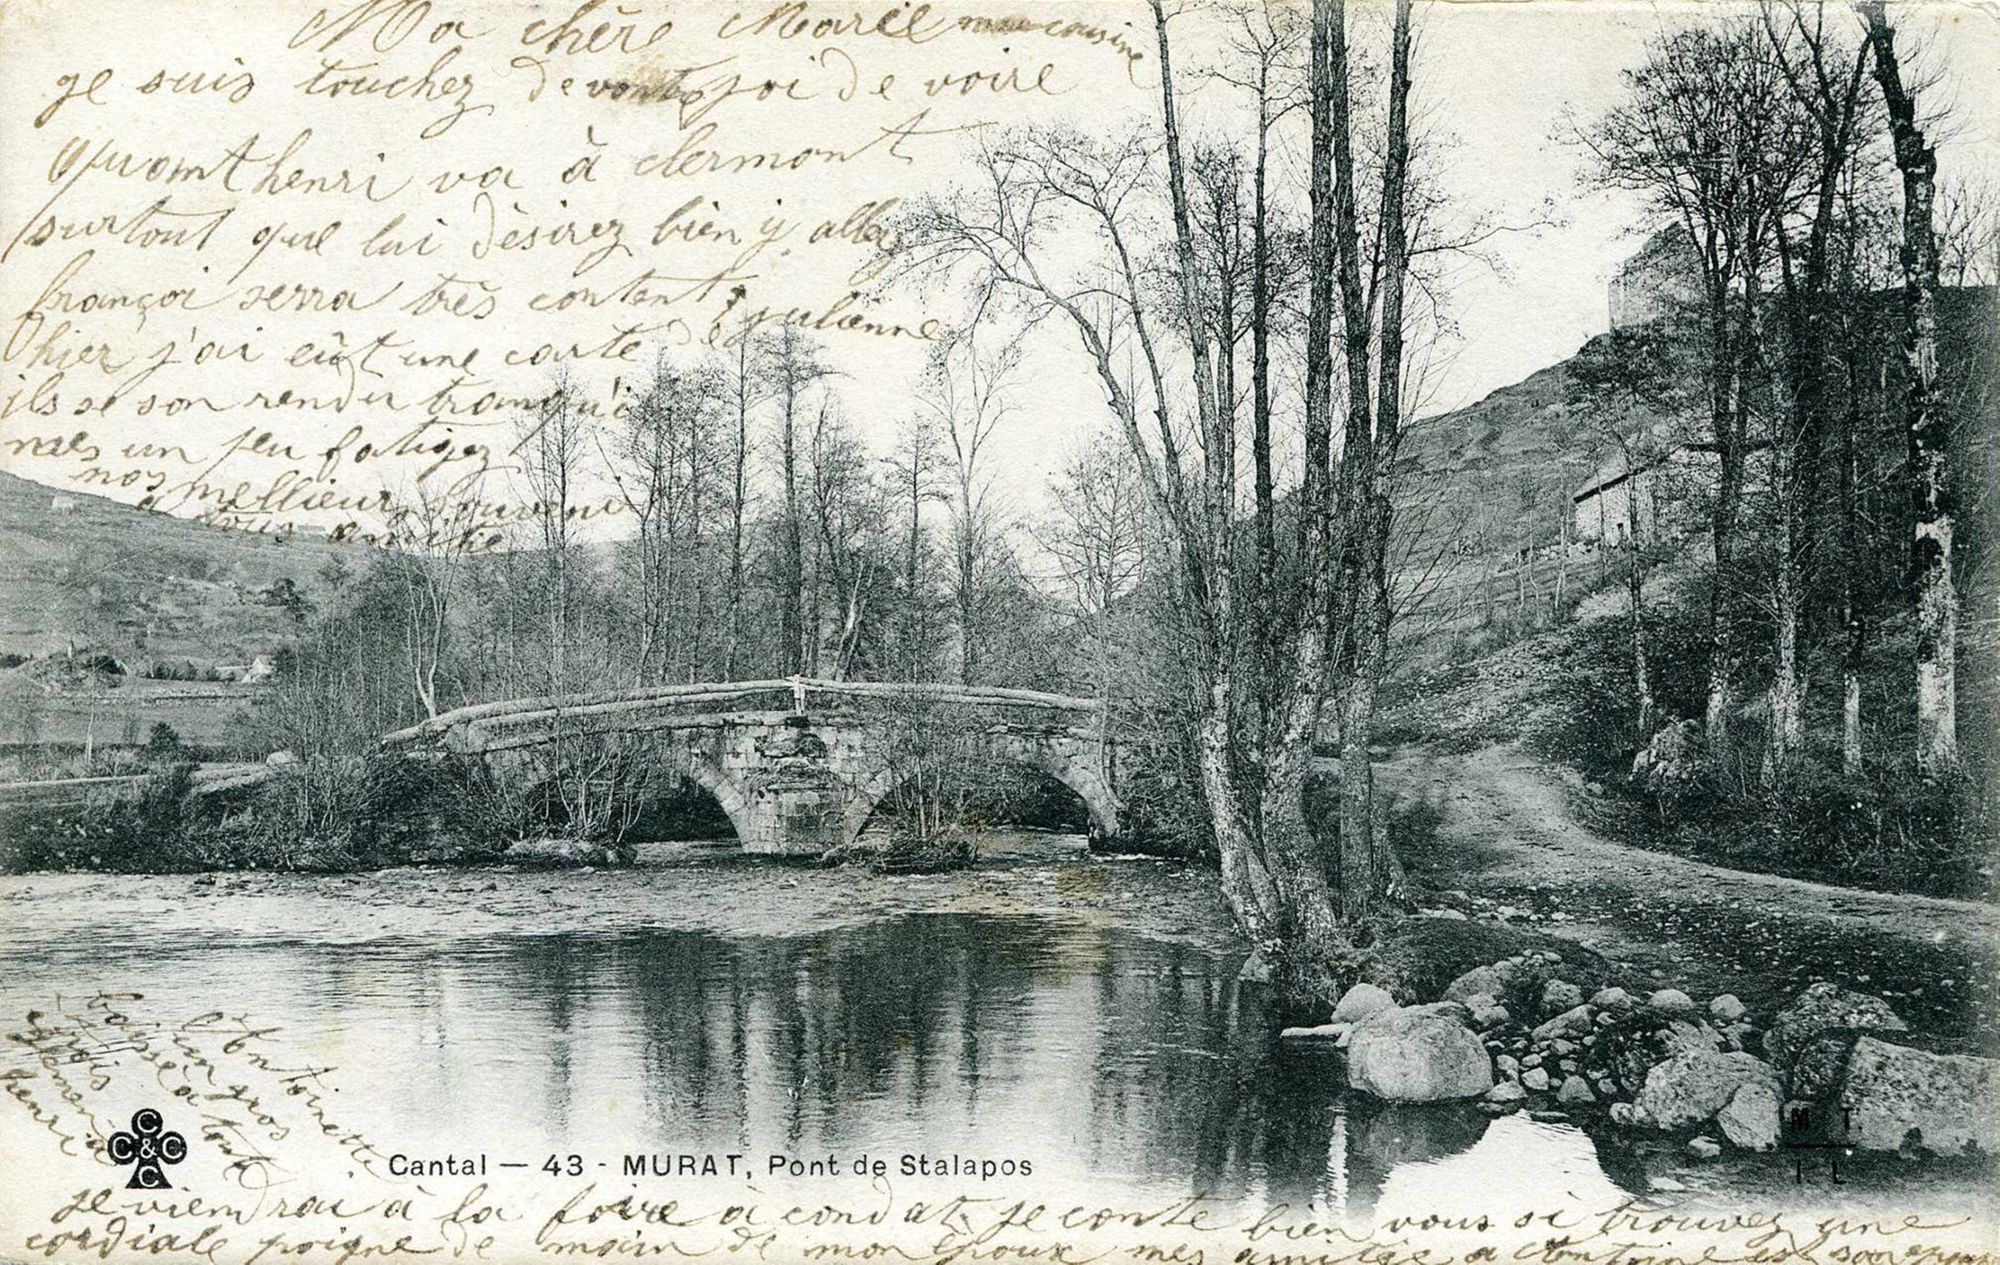 Ma chère Marie ma cousine
je suis touchez de votre joi de voire
Quomt henri va à clermont
surtout que lui dèsirez bien y allez
françoi serra très content
hier j'ai eût une carte de julienne
ils se son rendu tranqu'il
mes un peu fatigez
nos mellieur Souvenir
à vous amitie
l'Antoinette
fai un gros
baisé a toute
trois
egalement à
henri
C C & C C
Cantal — 43 - MURAT, Pont de Stalapos
M. T.
I. L.
je viendrai à la foire à condat je conte bien vous si trouvez une
cordiale poigne de main de mon epoux mes amitie a Antoine est son